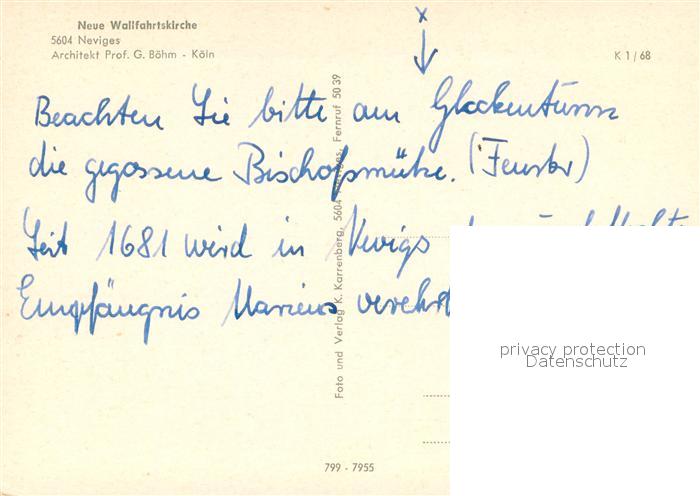 Neue Wallfahrtskirche
5604 Neviges
Architekt Prof. G. Böhm - Köln
K 1/68
x
Beachten Sie bitte am Glockenturm
die gegossene Bischofsmütze. (Fenster)
Seit 1681 wird in Neviges
Empfängnis Mariens verehrt
Foto und Verlag K. Karrenberg, 5604 Neviges, Fernruf 50 39
799 - 7955
privacy protection
Datenschutz